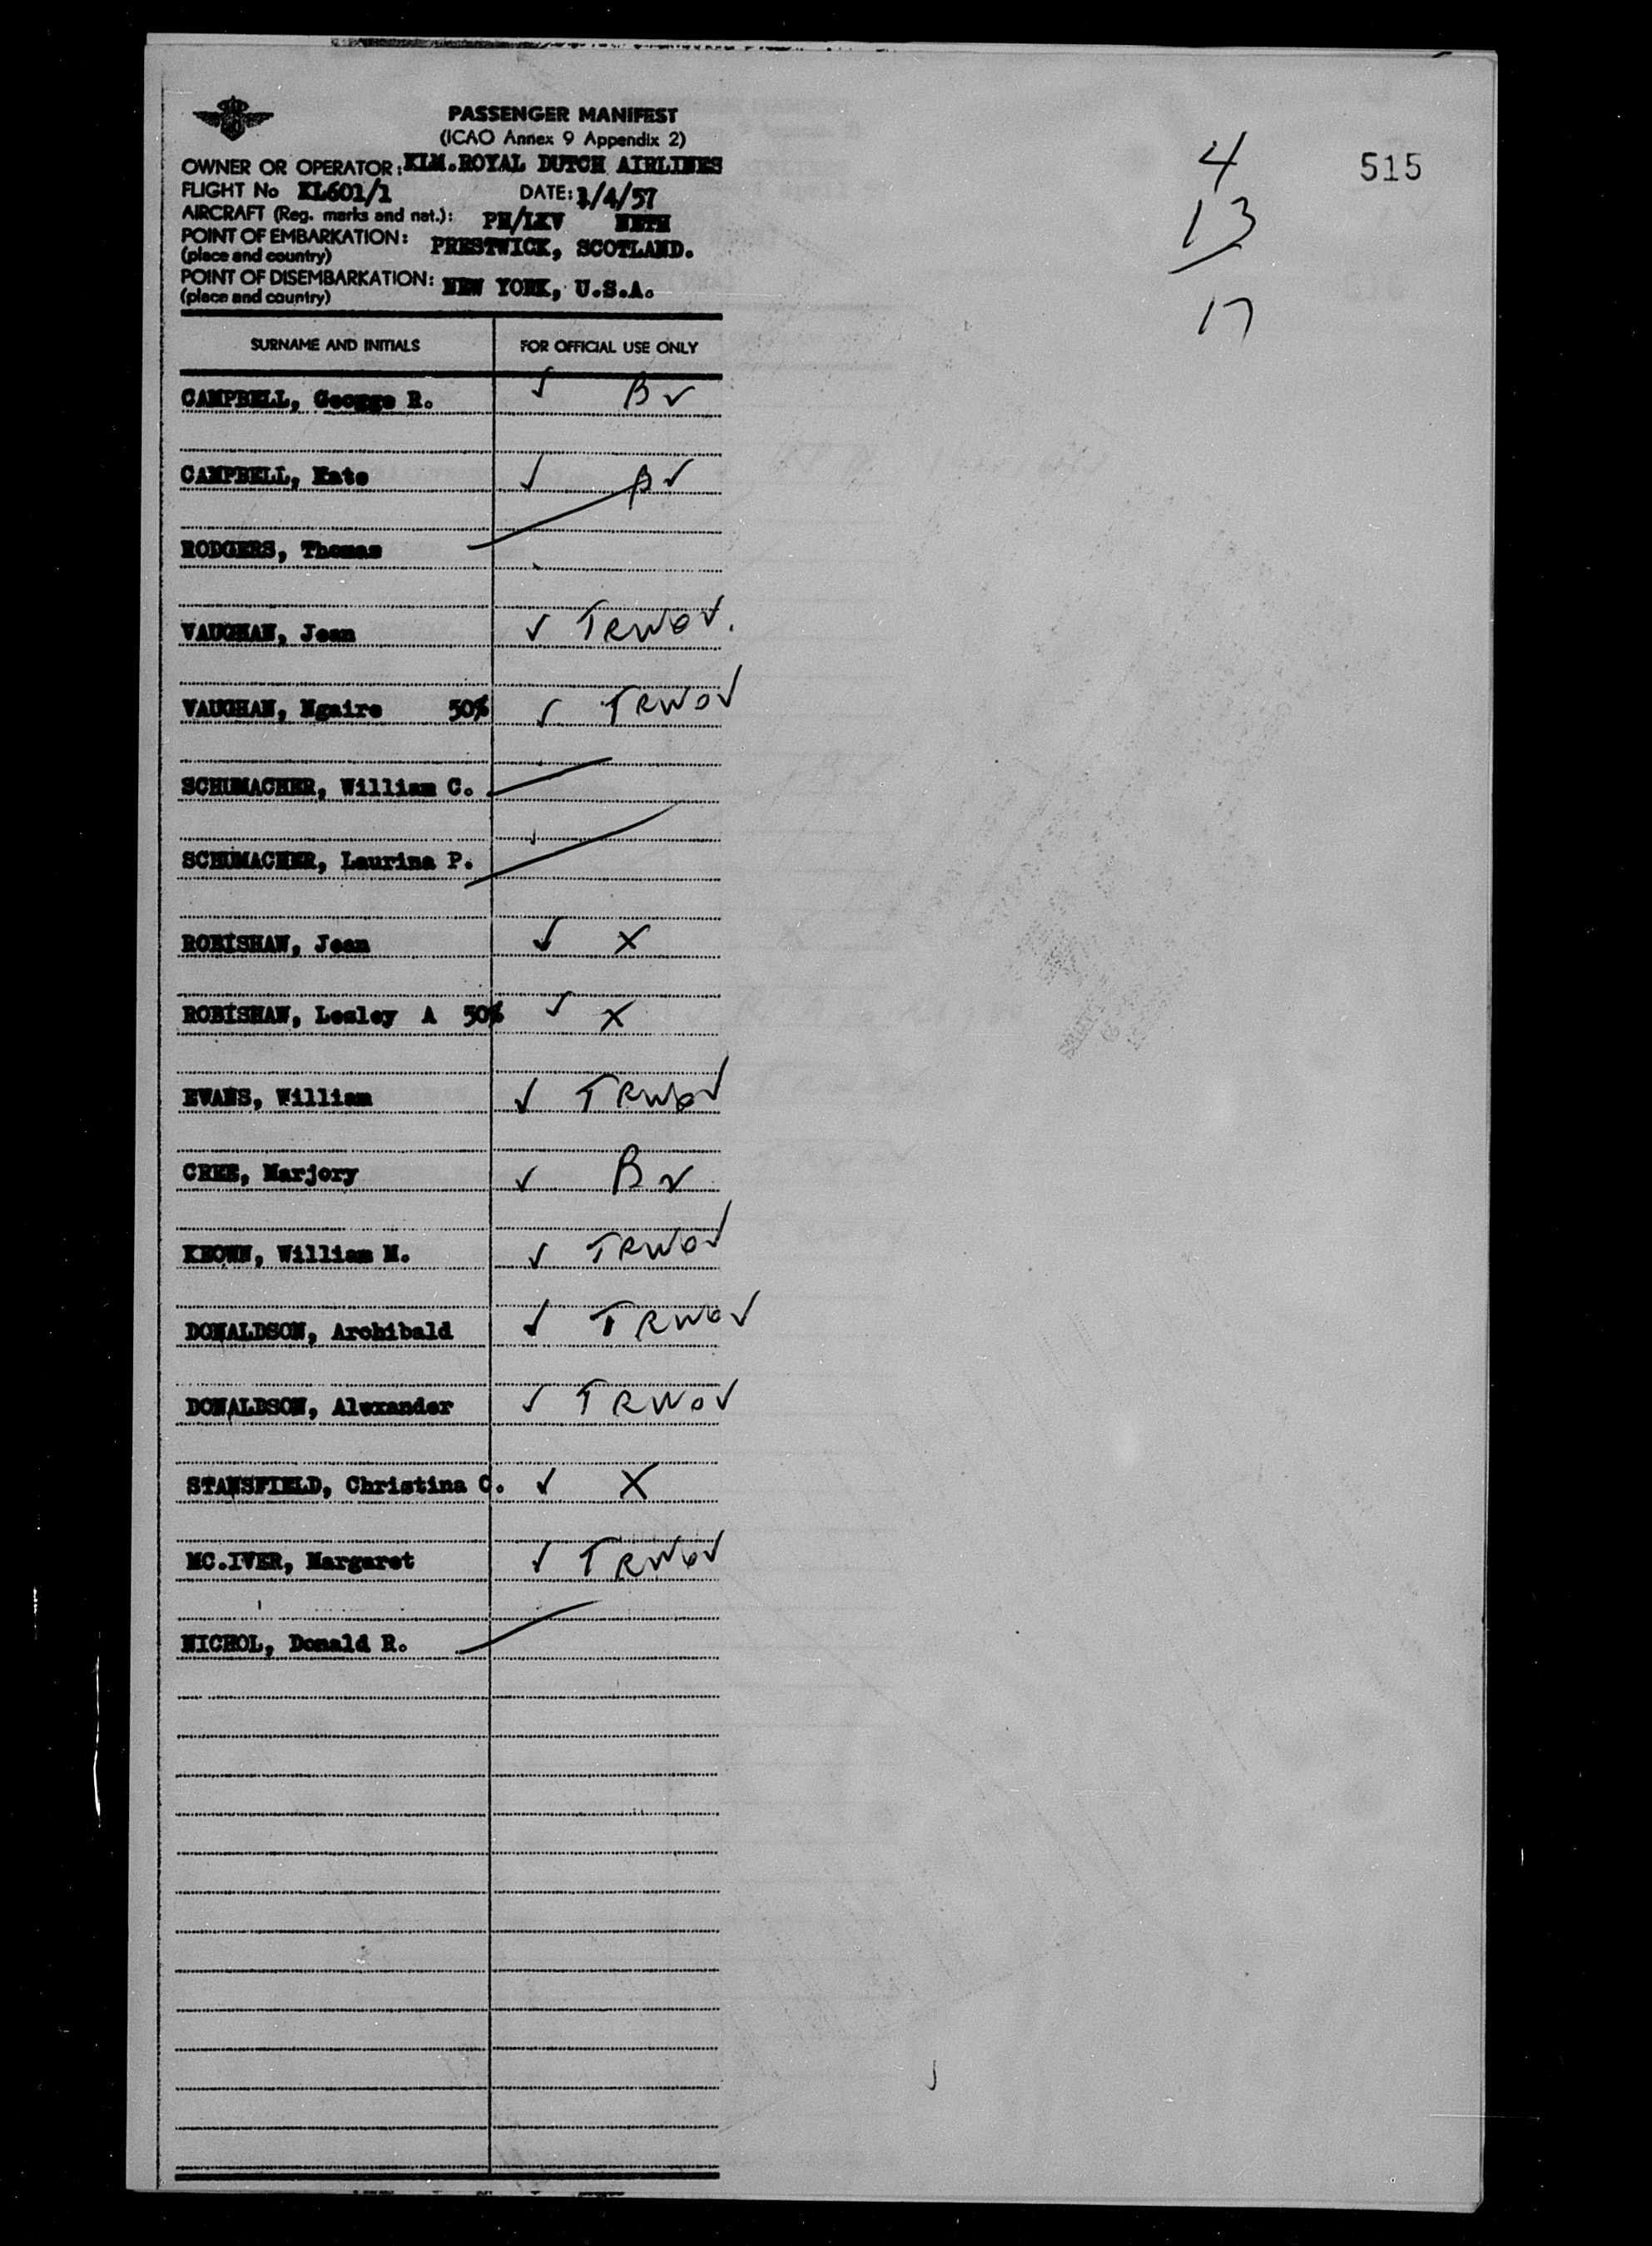 PASSENGER MANIFEST
(ICAO Annex 9 Appendix 2)
OWNER OR OPERATOR: KLM.ROYAL DUTCH AIRLINES
FLIGHT No KL601/1 DATE: 1/4/57
AIRCRAFT (Reg. marks and nat.): PH/LKV NETH
POINT OF EMBARKATION: PRESTWICK, SCOTLAND.
(place and country)
POINT OF DISEMBARKATION: NEW YORK, U.S.A.
(place and country)
4
13
17
515
SURNAME AND INITIALS FOR OFFICIAL USE ONLY
CAMPBELL, George R. ✓ B ✓
CAMPBELL, Kate ✓ B ✓
RODGERS, Thomas
VAUGHAN, Jean ✓ TRWO ✓
VAUGHAN, Ngaire 50% ✓ TRWO ✓
SCHUMACHER, William C.
SCHUMACHER, Laurina P.
ROBISHAW, Jean ✓ X
ROBISHAW, Lesley A 50% ✓ X
EVANS, William ✓ TRWO ✓
CREE, Marjory ✓ B ✓
KEOWN, William M. ✓ TRWO ✓
DONALDSON, Archibald ✓ TRWO ✓
DONALDSON, Alexander ✓ TRWO ✓
STANSFIELD, Christina C. ✓ X
MC.IVER, Margaret ✓ TRWO ✓
NICHOL, Donald R.